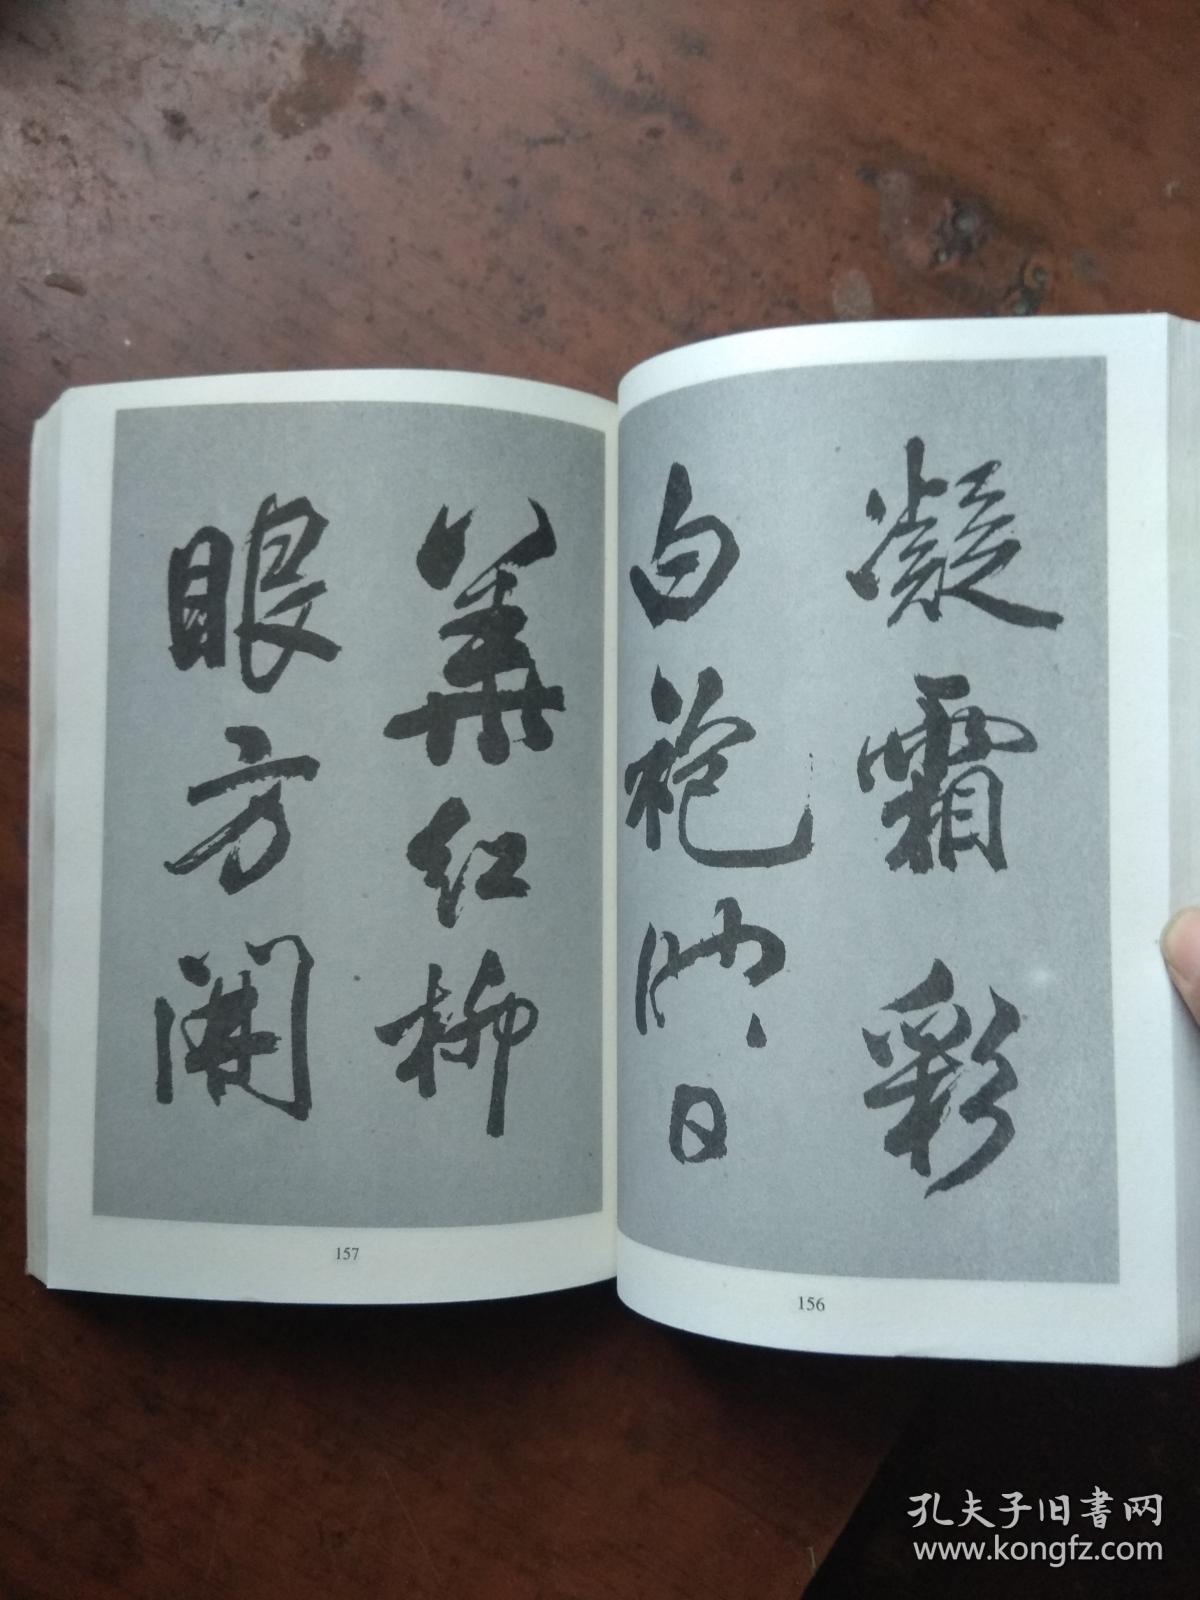 凝霜彩
白袍映日
華紅柳
眼方開
157
156
孔夫子旧書网
www.kongfz.com